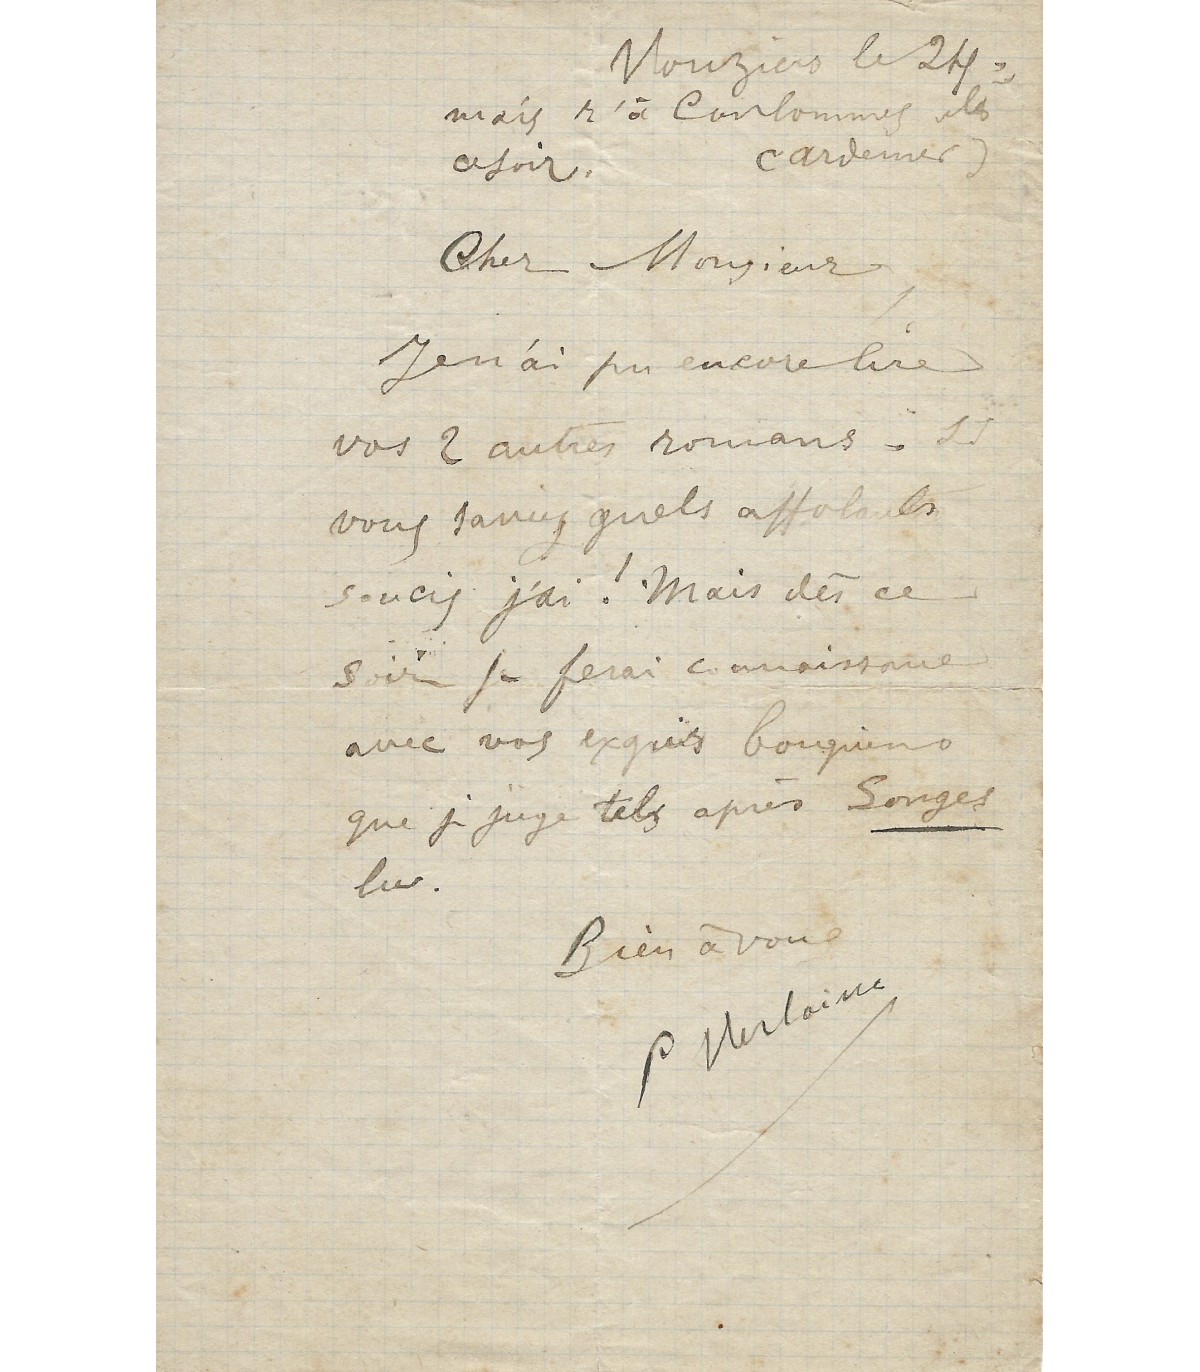 Vouziers le 24
mais r'à Coulommes
ce soir. (ardennes)
Cher Monsieur,
Je n'ai pu encore lire
vos 2 autres romans. Si
vous saviez quels affolants
soucis j'ai ! Mais dès ce
soir je ferai connaissance
avec vos exquis bouquins
que je juge tels après Songes
lu.
Bien à vous
P Verlaine